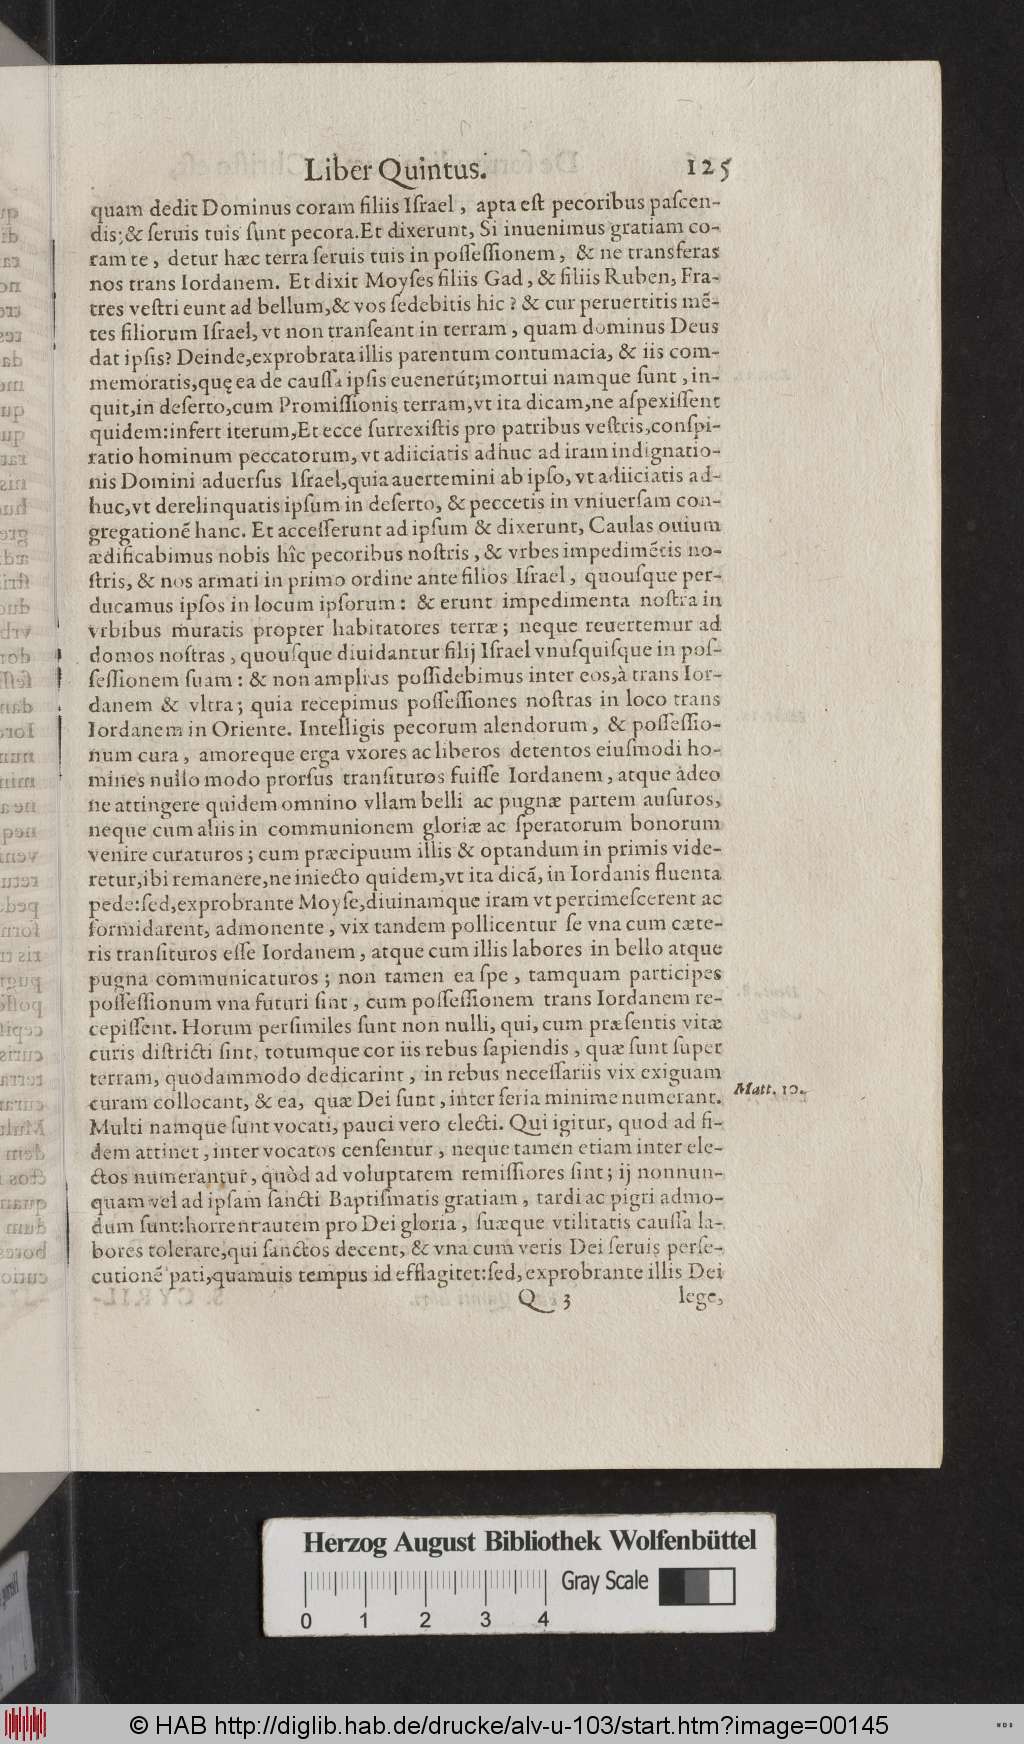 Liber Quintus. 125
quam dedit Dominus coram filiis Iſrael, apta eſt pecoribus paſcen-
dis; & ſeruis tuis ſunt pecora. Et dixerunt, Si inuenimus gratiam co-
ram te, detur hæc terra ſeruis tuis in poſſeſſionem, & ne transferas
nos trans Iordanem. Et dixit Moyſes filiis Gad, & filiis Ruben, Fra-
tres veſtri eunt ad bellum, & vos ſedebitis hic? & cur peruertitis mẽ-
tes filiorum Iſrael, vt non tranſeant in terram, quam dominus Deus
dat ipſis? Deinde, exprobrata illis parentum contumacia, & iis com-
memoratis, quę ea de cauſſa ipſis euenerũt; mortui namque ſunt, in-
quit, in deſerto, cum Promiſſionis terram, vt ita dicam, ne aſpexiſſent
quidem: infert iterum, Et ecce ſurrexiſtis pro patribus veſtris, conſpi-
ratio hominum peccatorum, vt adiiciatis adhuc ad iram indignatio-
nis Domini aduerſus Iſrael, quia auertemini ab ipſo, vt adiiciatis ad-
huc, vt derelinquatis ipſum in deſerto, & peccetis in vniuerſam con-
gregationẽ hanc. Et acceſſerunt ad ipſum & dixerunt, Caulas ouium
ædificabimus nobis hîc pecoribus noſtris, & vrbes impedimẽtis no-
ſtris, & nos armati in primo ordine ante filios Iſrael, quouſque per-
ducamus ipſos in locum ipſorum: & erunt impedimenta noſtra in
vrbibus muratis propter habitatores terræ; neque reuertemur ad
domos noſtras, quouſque diuidantur filij Iſrael vnuſquiſque in poſ-
ſeſſionem ſuam: & non amplius poſſidebimus inter eos, à trans Ior-
danem & vltra; quia recepimus poſſeſſiones noſtras in loco trans
Iordanem in Oriente. Intelligis pecorum alendorum, & poſſeſſio-
num cura, amoreque erga vxores ac liberos detentos eiuſmodi ho-
mines nullo modo prorſus tranſituros fuiſſe Iordanem, atque àdeo
ne attingere quidem omnino vllam belli ac pugnæ partem auſuros,
neque cum aliis in communionem gloriæ ac ſperatorum bonorum
venire curaturos; cum præcipuum illis & optandum in primis vide-
retur, ibi remanere, ne iniecto quidem, vt ita dicã, in Iordanis fluenta
pede: ſed, exprobrante Moyſe, diuinamque iram vt pertimeſcerent ac
formidarent, admonente, vix tandem pollicentur ſe vna cum cæte-
ris tranſituros eſſe Iordanem, atque cum illis labores in bello atque
pugna communicaturos; non tamen ea ſpe, tamquam participes
poſſeſſionum vna futuri ſint, cum poſſeſſionem trans Iordanem re-
cepiſſent. Horum perſimiles ſunt non nulli, qui, cum præſentis vitæ
curis diſtricti ſint, totumque cor iis rebus ſapiendis, quæ ſunt ſuper
terram, quodammodo dedicarint, in rebus neceſſariis vix exiguam
curam collocant, & ea, quæ Dei ſunt, inter ſeria minime numerant. Matt. 10.
Multi namque ſunt vocati, pauci vero electi. Qui igitur, quod ad fi-
dem attinet, inter vocatos cenſentur, neque tamen etiam inter ele-
ctos numerantur, quòd ad voluptatem remiſſiores ſint; ij nonnun-
quam vel ad ipſam ſancti Baptiſmatis gratiam, tardi ac pigri admo-
dum ſunt: horrent autem pro Dei gloria, ſuæque vtilitatis cauſſa la-
bores tolerare, qui ſanctos decent, & vna cum veris Dei ſeruis perſe-
cutionẽ pati, quamuis tempus id efflagitet: ſed, exprobrante illis Dei
Q 3 lege,
Herzog August Bibliothek Wolfenbüttel
Gray Scale
0 1 2 3 4
© HAB http://diglib.hab.de/drucke/alv-u-103/start.htm?image=00145